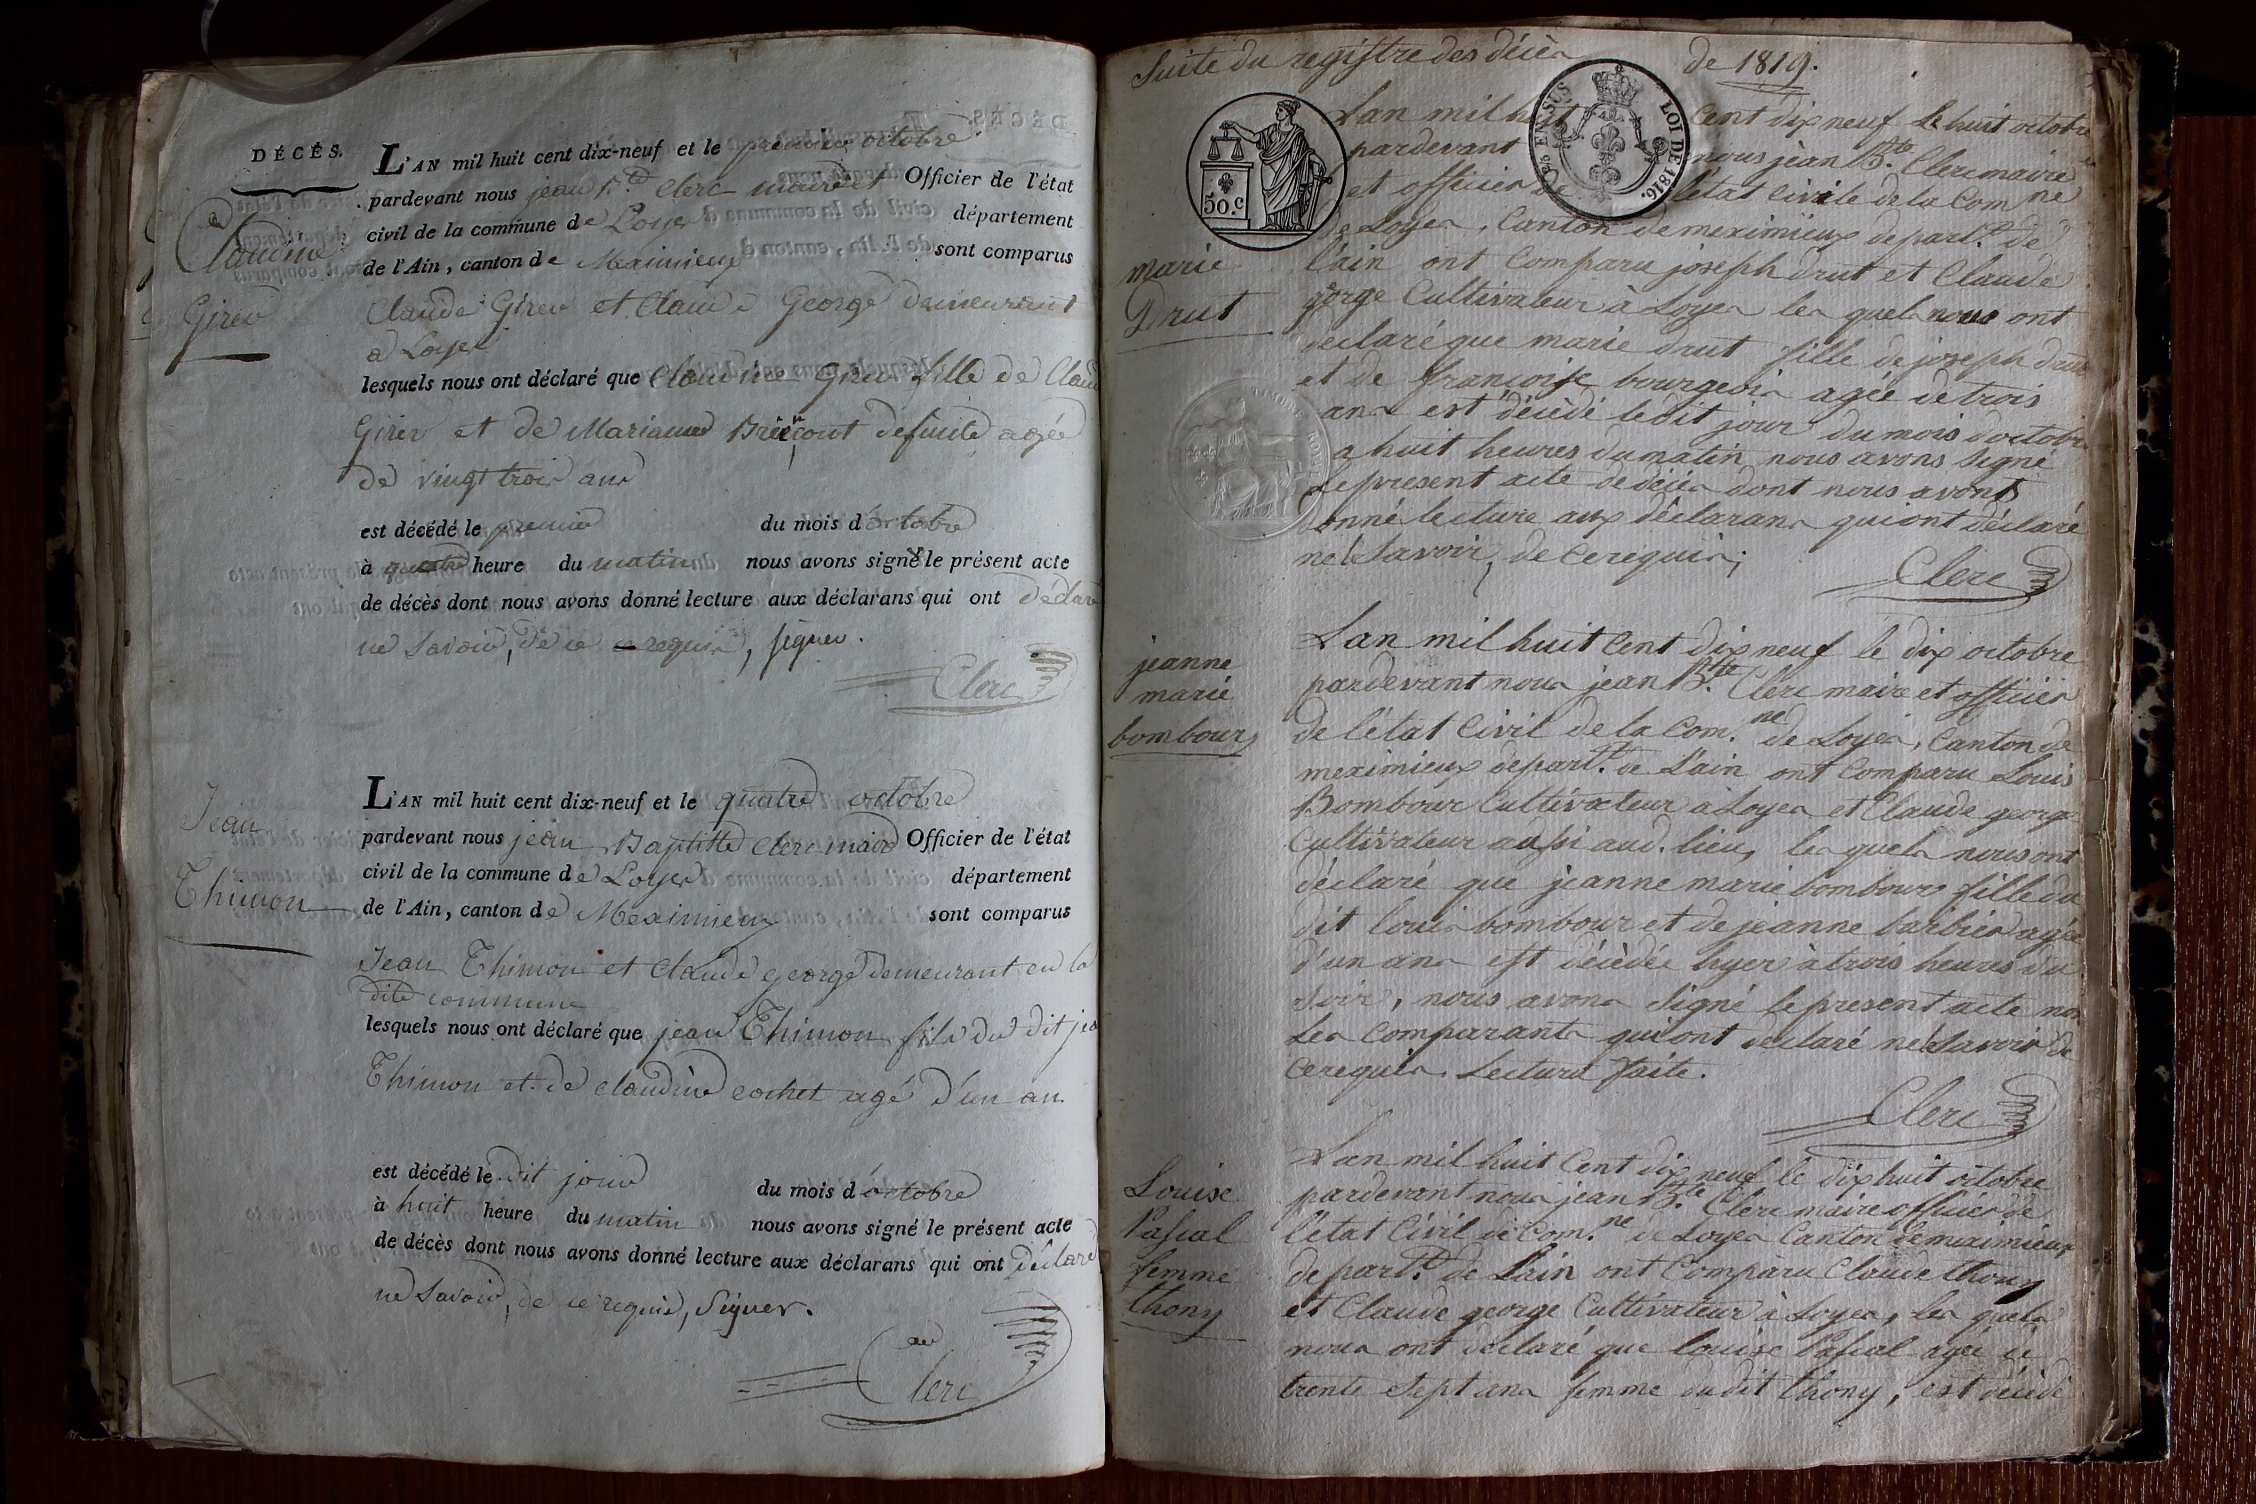 DÉCÈS.
Claudine
Girer
L'AN mil huit cent dix-neuf et le premier octobre
pardevant nous jean B.te Clerc maire et Officier de l'état
civil de la commune de Loyes département
de l'Ain, canton de Meximieux sont comparus
Claude Girer et Claude George demeurant
a Loyes
lesquels nous ont déclaré que Claudine Girer fille de Claude
Girer et de Marianne défunte agée
de vingt trois ans
est décédé le premier du mois d'octobre
à quatre heure du matin nous avons signé le présent acte
de décès dont nous avons donné lecture aux déclarans qui ont déclaré
ne savoir, de ce requis, signer.
Clerc
Jean
Thimon
L'AN mil huit cent dix-neuf et le quatre octobre
pardevant nous jean Baptiste Clerc maire Officier de l'état
civil de la commune de Loyes département
de l'Ain, canton de Meximieux sont comparus
Jean Thimon et Claude george demeurant en la
dite commune
lesquels nous ont déclaré que jean Thimon fils du dit jean
Thimon et de claudine cochet agé d'un an
est décédé le dit jour du mois d'octobre
à huit heure du matin nous avons signé le présent acte
de décès dont nous avons donné lecture aux déclarans qui ont déclaré
ne savoir, de ce requis, Signer.
Clerc
Suite du registre des décès de 1819.
50.c
LOI DE 1816.
Marie
Drut
Lan mil huit Cent dix neuf le huit octobre
pardevant nous jèan B.te Clerc maire
et officier de l'état civile de la Com ne
de Loyes, Canton de meximieux depart.t de
l'ain ont Comparu joseph drut et Claude
gorge Cultivateur à Loyes les quels nous ont
declaré que marie drut fille de joseph drut
et de françoise bourgeois agée de trois
ans est décèdé le dit jour du mois d'octobre
a huit heures du matin nous avons signé
le present acte de décès dont nous avonts
donné lecture aux déclarans qui ont déclaré
ne savoir, de ce requis;
Clerc
jeanne
marie
bombour
Lan mil huit Cent dix neuf le dix octobre
pardevant nous jean B.te Clerc maire et officier
de l'état Civil de la Com.ne de Loyes, Canton de
meximieux depart.t de L'ain ont Comparu Louis
Bombour Cultivateur à Loyes et Claude george
Cultivateur aussi aud. lieu, les quels nous ont
déclaré que jeanne marie bombour fille du
dit louis bombour et de jeanne barbier agée
d'un ans est décèdée hyer à trois heures du
soir, nous avons signé le present acte non
Les Comparants qui ont declaré ne savoir de
Ce requis. Lecture faite.
Clerc
Louise
Pascal
femme
thony
Lan mil huit Cent dix neuf le dix huit octobre
pardevant nous jean B.te Clerc maire officier de
l'état Civil de Com.ne de Loyes Canton de meximieux
depart.t de Lain ont Comparu Claude thony
et Claude george Cultivateur à Loyes, les quels
nous ont declaré que louise Pascal agée de
trente sept ans femme du dit thony, est décèdé